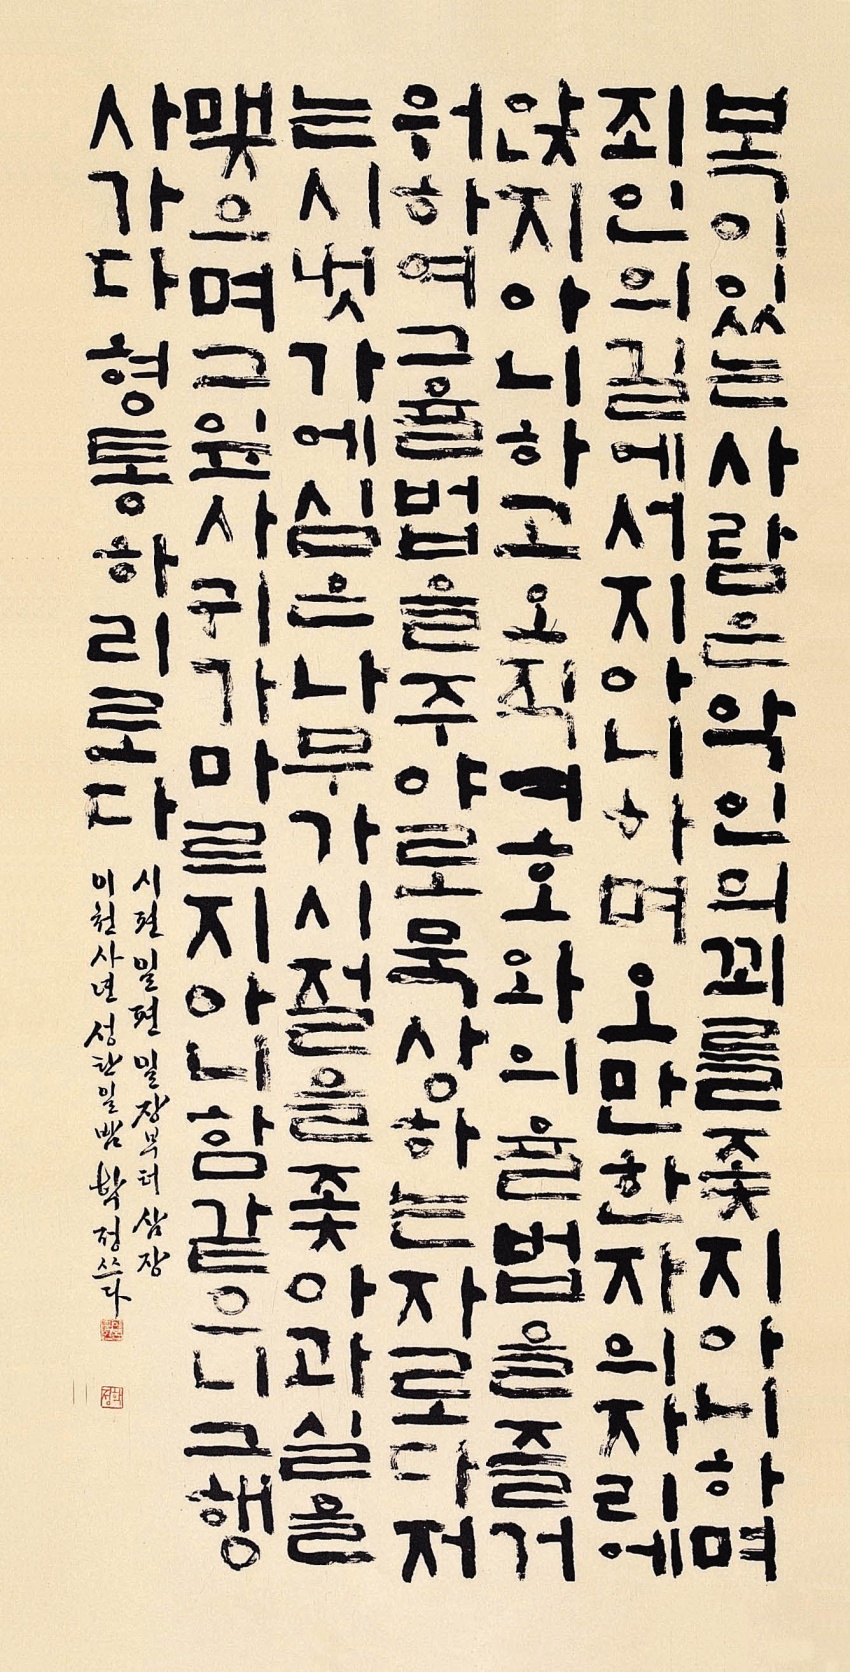 복이있는사람은악인의꾀를좇지아니하며
죄인의길에서지아니하며오만한자의자리에
앉지아니하고오직여호와의율법을즐거
워하여그율법을주야로묵상하는자로다저
는시냇가에심은나무가시절을좇아과실을
맺으며그잎사귀가마르지아니함같으니그행
사가다형통하리로다
시편일편일장부터삼장
이천사년성탄일밤 박정쓰다